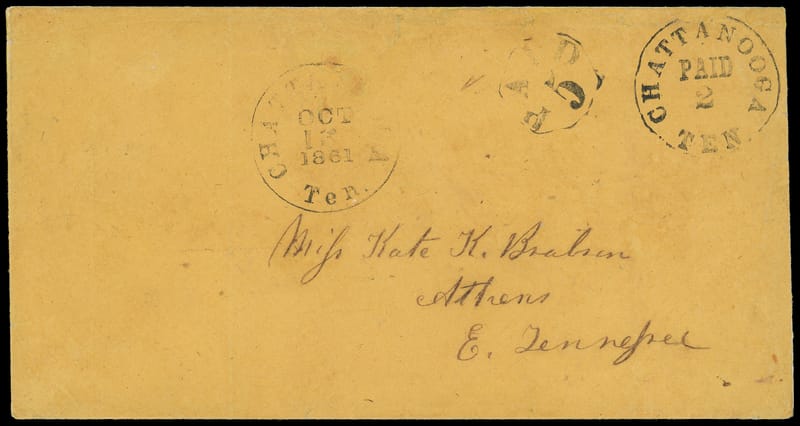 CHATTA
OCT
1861
Ten.
PAID
5
CHATTANOOGA
PAID
2
TEN
Miſs Kate K. Brabson
Athens
E. Tenneſsee